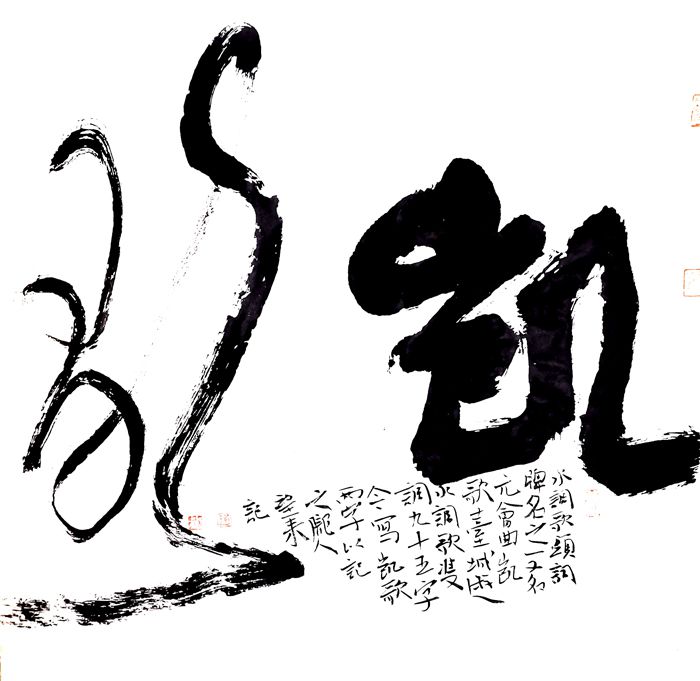 凱歌
水調歌頭詞
牌名之一又名
元會曲凱
歌臺城遊
水調歌雙
調九十五字
今寫凱歌
兩字以記
之
記